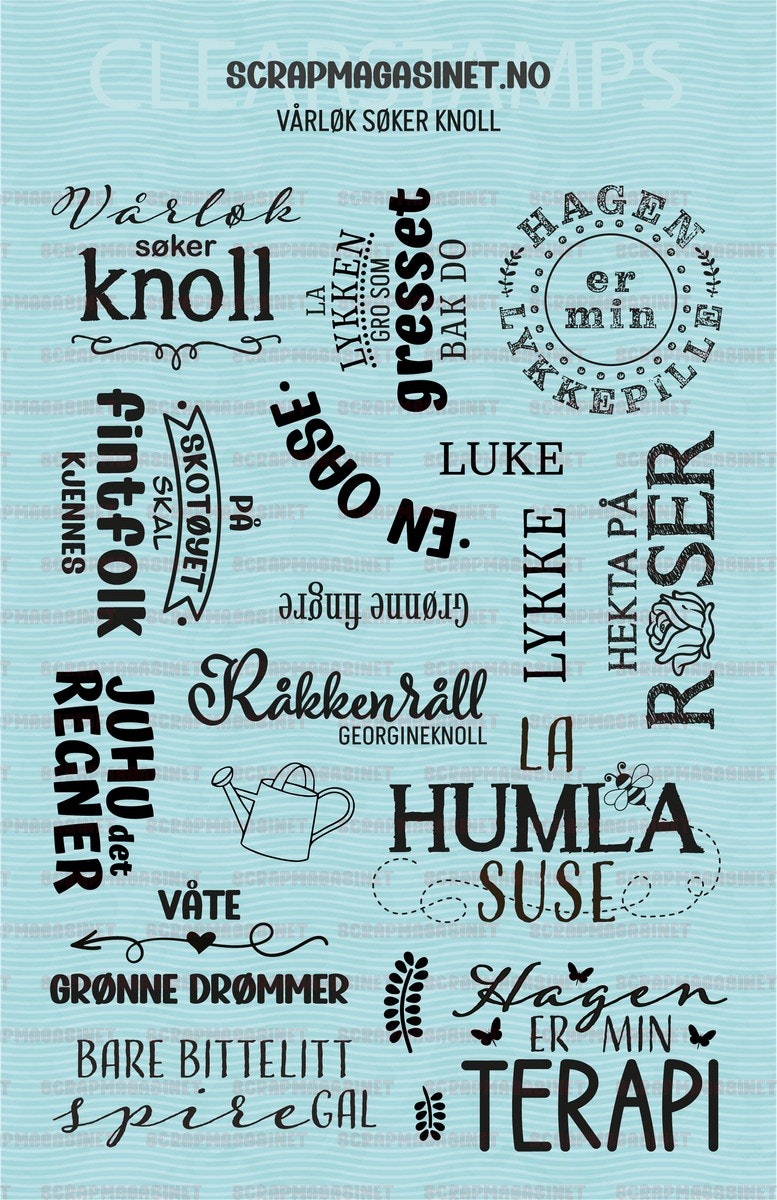 CLEARSTAMPS
SCRAPMAGASINET.NO
VÅRLØK SØKER KNOLL
Vårløk
søker
knoll
LA
LYKKEN
GRO SOM
gresset
BAK DO
HAGEN
er
min
LYKKEPILLE
PÅ
SKOTØYET
SKAL
fintfolk
KJENNES
·EN OASE·
LUKE
LYKKE
HEKTA PÅ
ROSER
Grønne fingre
Råkkenråll
GEORGINEKNOLL
JUHU det
REGNER
LA
HUMLA
SUSE
VÅTE
GRØNNE DRØMMER
Hagen
ER MIN
TERAPI
BARE BITTELITT
spireGAL
SCRAPMAGASINET